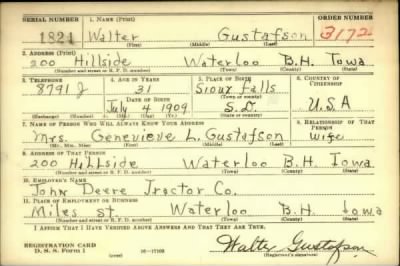 SERIAL NUMBER 1. NAME (Print) ORDER NUMBER
1824 Walter Gustafson 3172
(First) (Middle) (Last)
2. ADDRESS (Print)
200 Hillside Waterloo B.H. Iowa
(Number and street or R. F. D. number) (Town) (County) (State)
3. TELEPHONE 4. AGE IN YEARS 5. PLACE OF BIRTH 6. COUNTRY OF CITIZENSHIP
8791 J 31 Sioux Falls
DATE OF BIRTH (Town or county)
July 4 1909 S.D. U.S.A
(Mo.) (Day) (Yr.) (State or country)
7. NAME OF PERSON WHO WILL ALWAYS KNOW YOUR ADDRESS 8. RELATIONSHIP OF THAT PERSON
Mrs. Genevieve L. Gustafson Wife
(Mr., Mrs., Miss) (First) (Middle) (Last)
9. ADDRESS OF THAT PERSON
200 Hillside Waterloo B.H. Iowa
(Number and street or R. F. D. number) (Town) (County) (State)
10. EMPLOYER'S NAME
John Deere Tractor Co.
11. PLACE OF EMPLOYMENT OR BUSINESS
Miles st Waterloo B.H. Iowa
(Number and street or R. F. D. number) (Town) (County) (State)
I AFFIRM THAT I HAVE VERIFIED ABOVE ANSWERS AND THAT THEY ARE TRUE.
REGISTRATION CARD
D. S. S. Form 1 16-17105 Walter Gustafson
(Registrant's signature)